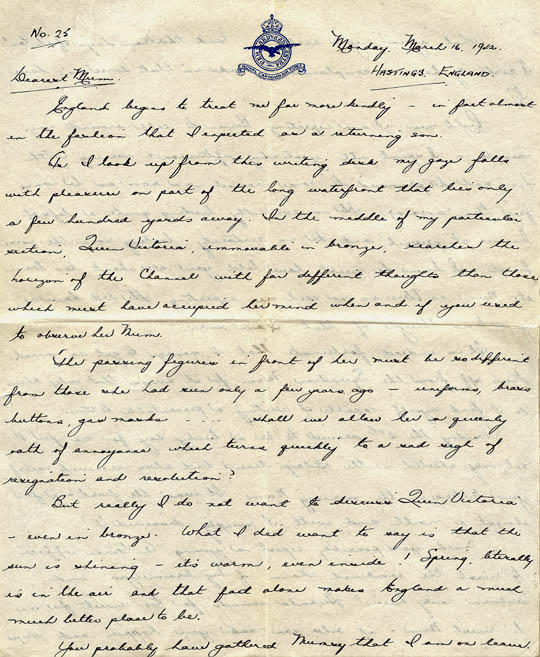 No. 25
Monday, March 16, 1942.
Hastings, England
Dearest Mum.
England begins to treat me far more kindly – in fact almost
in the fashion that I expected as a returning son.
As I look up from this writing desk my gaze falls
with pleasure on part of the long waterfront that lies only
a few hundred yards away. In the middle of my particular
section, 'Queen Victoria', immovable in bronze, searches the
horizon of the Channel with far different thoughts than those
which must have occupied her mind when and if you used
to observe her Mum.
The passing figures in front of her must be so different
from those she had seen only a few years ago – uniforms, brass
buttons, gas masks .... shall we allow her a queenly
oath of annoyance which turns quickly to a sad sigh of
resignation and resolution?
But really I do not want to discuss 'Queen Victoria'
– even in bronze. What I did want to say is that the
sun is shining – it's warm, even inside! Spring, literally
is in the air and that fact alone makes England a much
much better place to be.
You probably have gathered Mumsy that I am on leave.